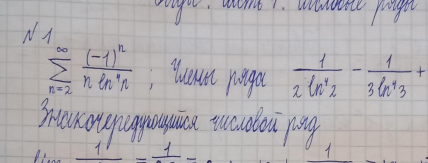 часть 1. Числовые ряды
N 1
∞ ∑ n=2 (-1)ⁿ / n ln⁴n ; Члены ряда 1 / 2 ln⁴2 - 1 / 3 ln⁴3 +
Знакочередующийся числовой ряд